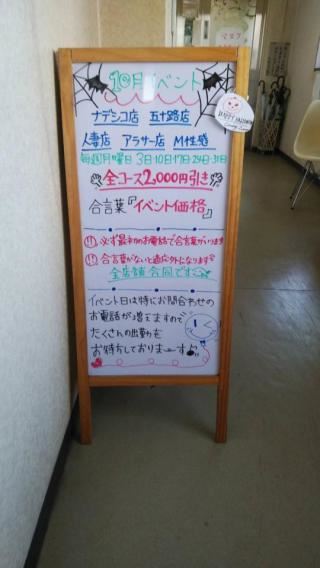 10月イベント
ナデシコ店 五十路店
人妻店 アラサー店 M性感
毎週月曜日 3日10日17日24日31日
全コース2,000円引き
合言葉『イベント価格』
必ず最初のお電話で合言葉がいります
合言葉がないと適応外になります
全店舗合同です
イベント日は特にお問合わせの
お電話が増えますので
たくさんの出勤を
お待ちしておりまーす!!
HAPPY HALLOWEEN